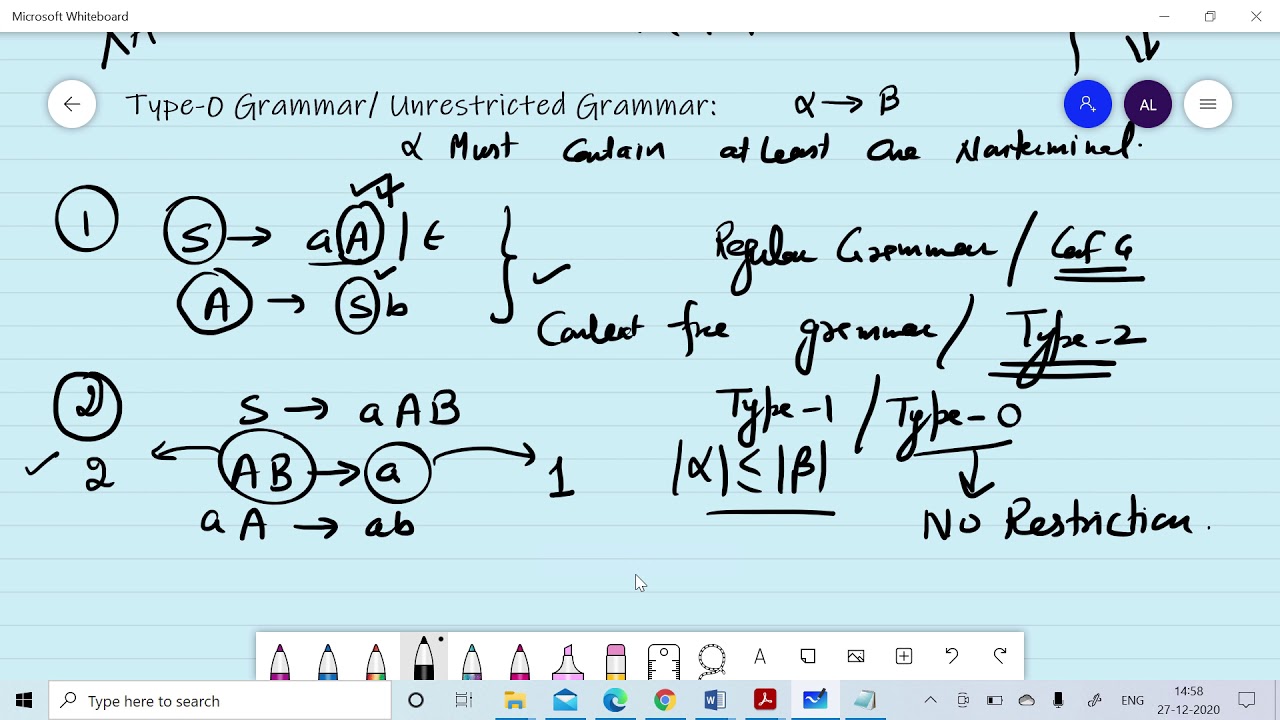 Microsoft Whiteboard
Type-0 Grammar/ Unrestricted Grammar: α → β
AL
α Must Contain at least one Nonterminal.
1 S → aA | ε Regular Grammar / CFG
A → Sb Context free grammar / Type-2
2 S → aAB Type-1 / Type-0
2 AB → a 1 |α| ≤ |β|
aA → ab No Restriction.
A
Type here to search
ENG
14:58
27-12-2020